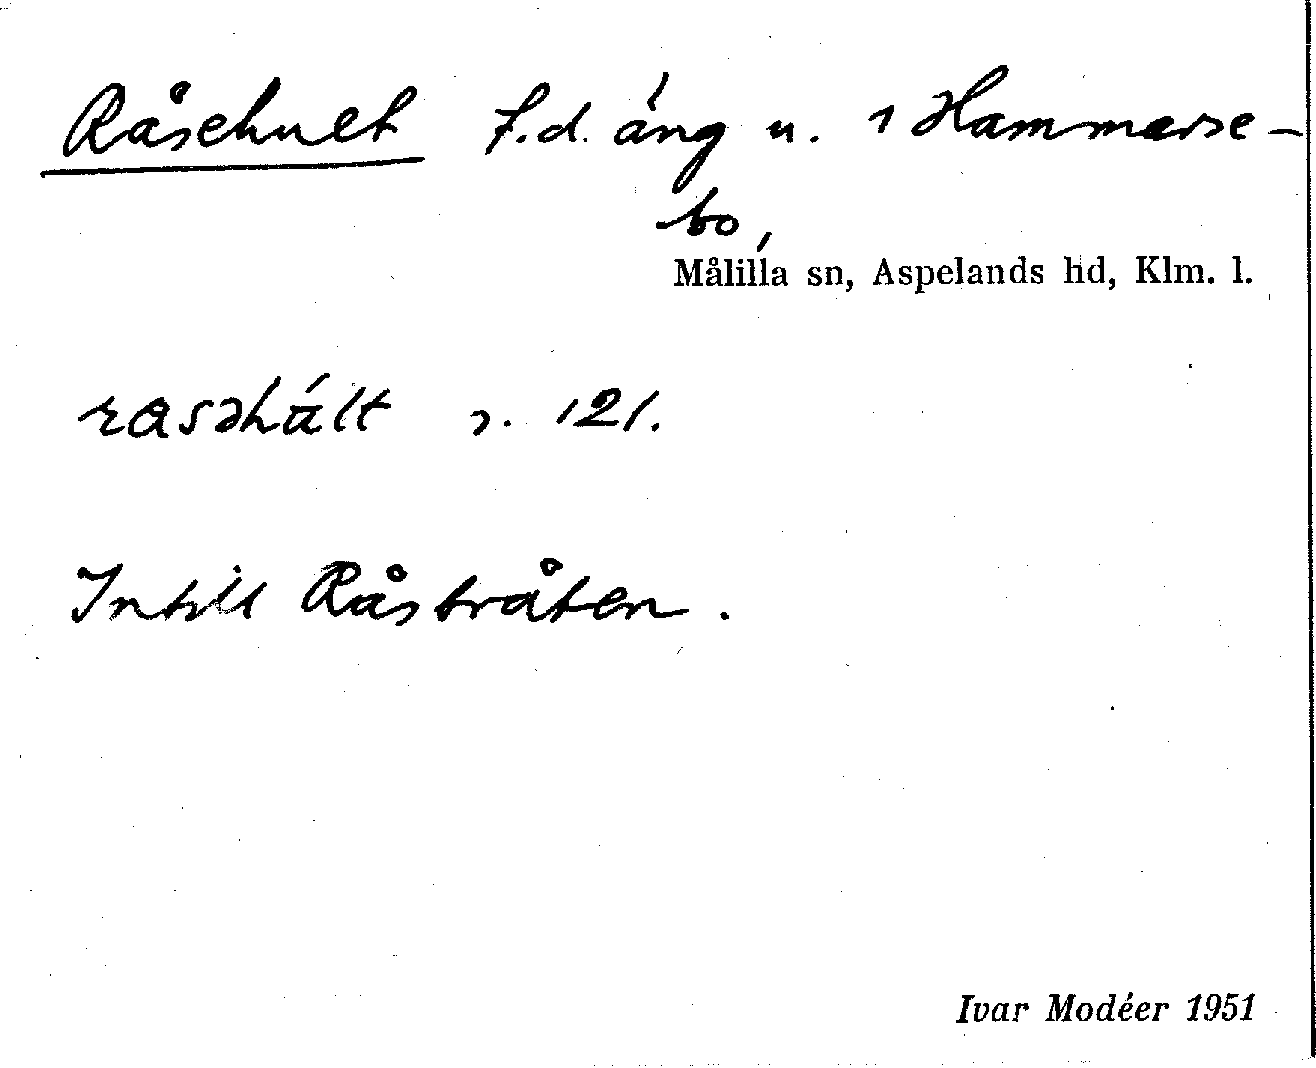 Råsehult f.d. äng u. 1 Hammarse-
bo,
Målilla sn, Aspelands hd, Klm. l.
121.
Intill Råstråten.
Ivar Modéer 1951